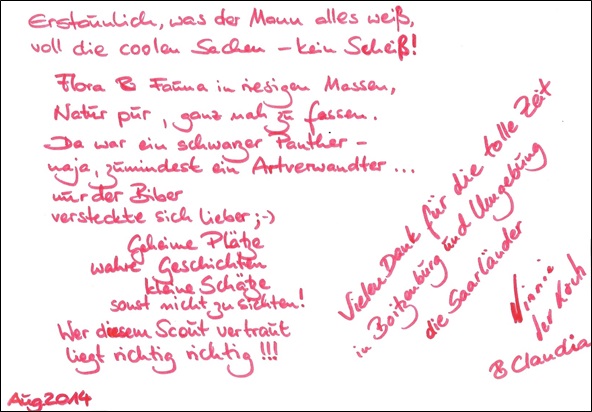 Erstaunlich, was der Mann alles weiß,
voll die coolen Sachen – kein Scheiß!
Flora & Fauna in riesigen Massen,
Natur pur, ganz nah zu fassen.
Da war ein schwarzer Panther –
naja, zumindest ein Artverwandter...
nur der Biber
versteckte sich lieber ;-)
Geheime Plätze
wahre Geschichten
kleine Schätze
sonst nicht zu sichten!
Wer diesem Scout vertraut
liegt richtig richtig!!!
Vielen Dank für die tolle Zeit
in Boitzenburg und Umgebung
die Saarländer
Ninnie
der Koch
& Claudia
Aug 2014